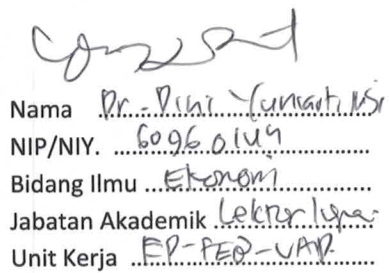 Nama Dr. Dini Yuniarti, MSi
NIP/NIY. 60960144
Bidang Ilmu Ekonomi
Jabatan Akademik Lektor
Unit Kerja EP-FEB-UAD